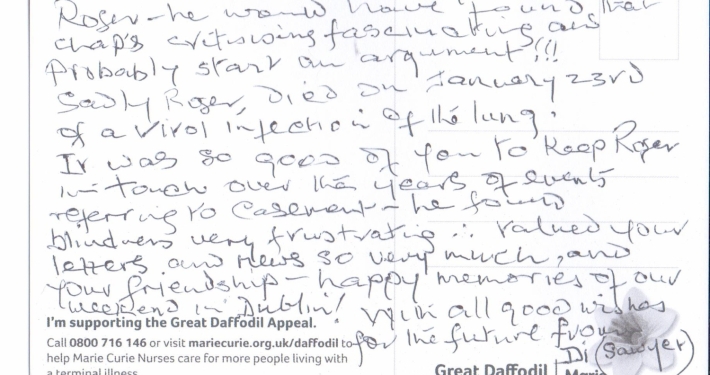 Roger – he would have found that
chap's criticising fascinating and
Probably start an argument!!!
Sadly Roger, died on January 23rd
of a viral infection of the lung.
It was so good of you to keep Roger
in touch over the years of events
referring to Casement – he found
blindness very frustrating ∴ valued your
letters and news so very much, and
your friendship – happy memories of our
weekend in Dublin! With all good wishes
for the future from
Di (Sawyer)
I'm supporting the Great Daffodil Appeal.
Call 0800 716 146 or visit mariecurie.org.uk/daffodil to
help Marie Curie Nurses care for more people living with
a terminal illness.
Great Daffodil
Marie